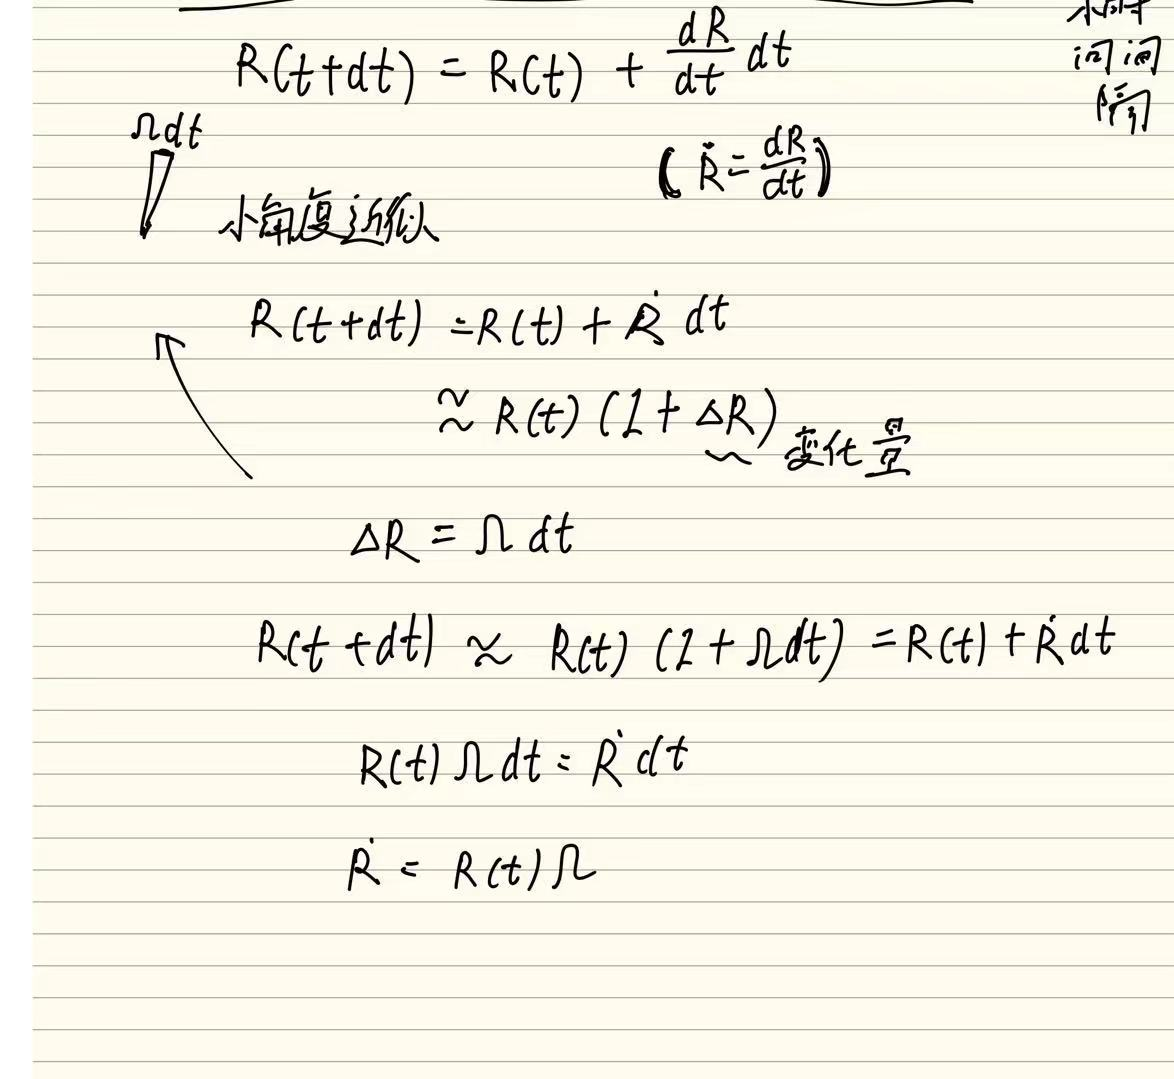 R(t+dt) = R(t) + dR/dt dt
小时
间间
隔
Ωdt
(Ṙ = dR/dt)
小角度近似
R(t+dt) = R(t) + Ṙ dt
≈ R(t) (1 + ΔR)
变化量
ΔR = Ω dt
R(t+dt) ≈ R(t) (1 + Ωdt) = R(t) + Ṙ dt
R(t) Ω dt = Ṙ dt
Ṙ = R(t) Ω